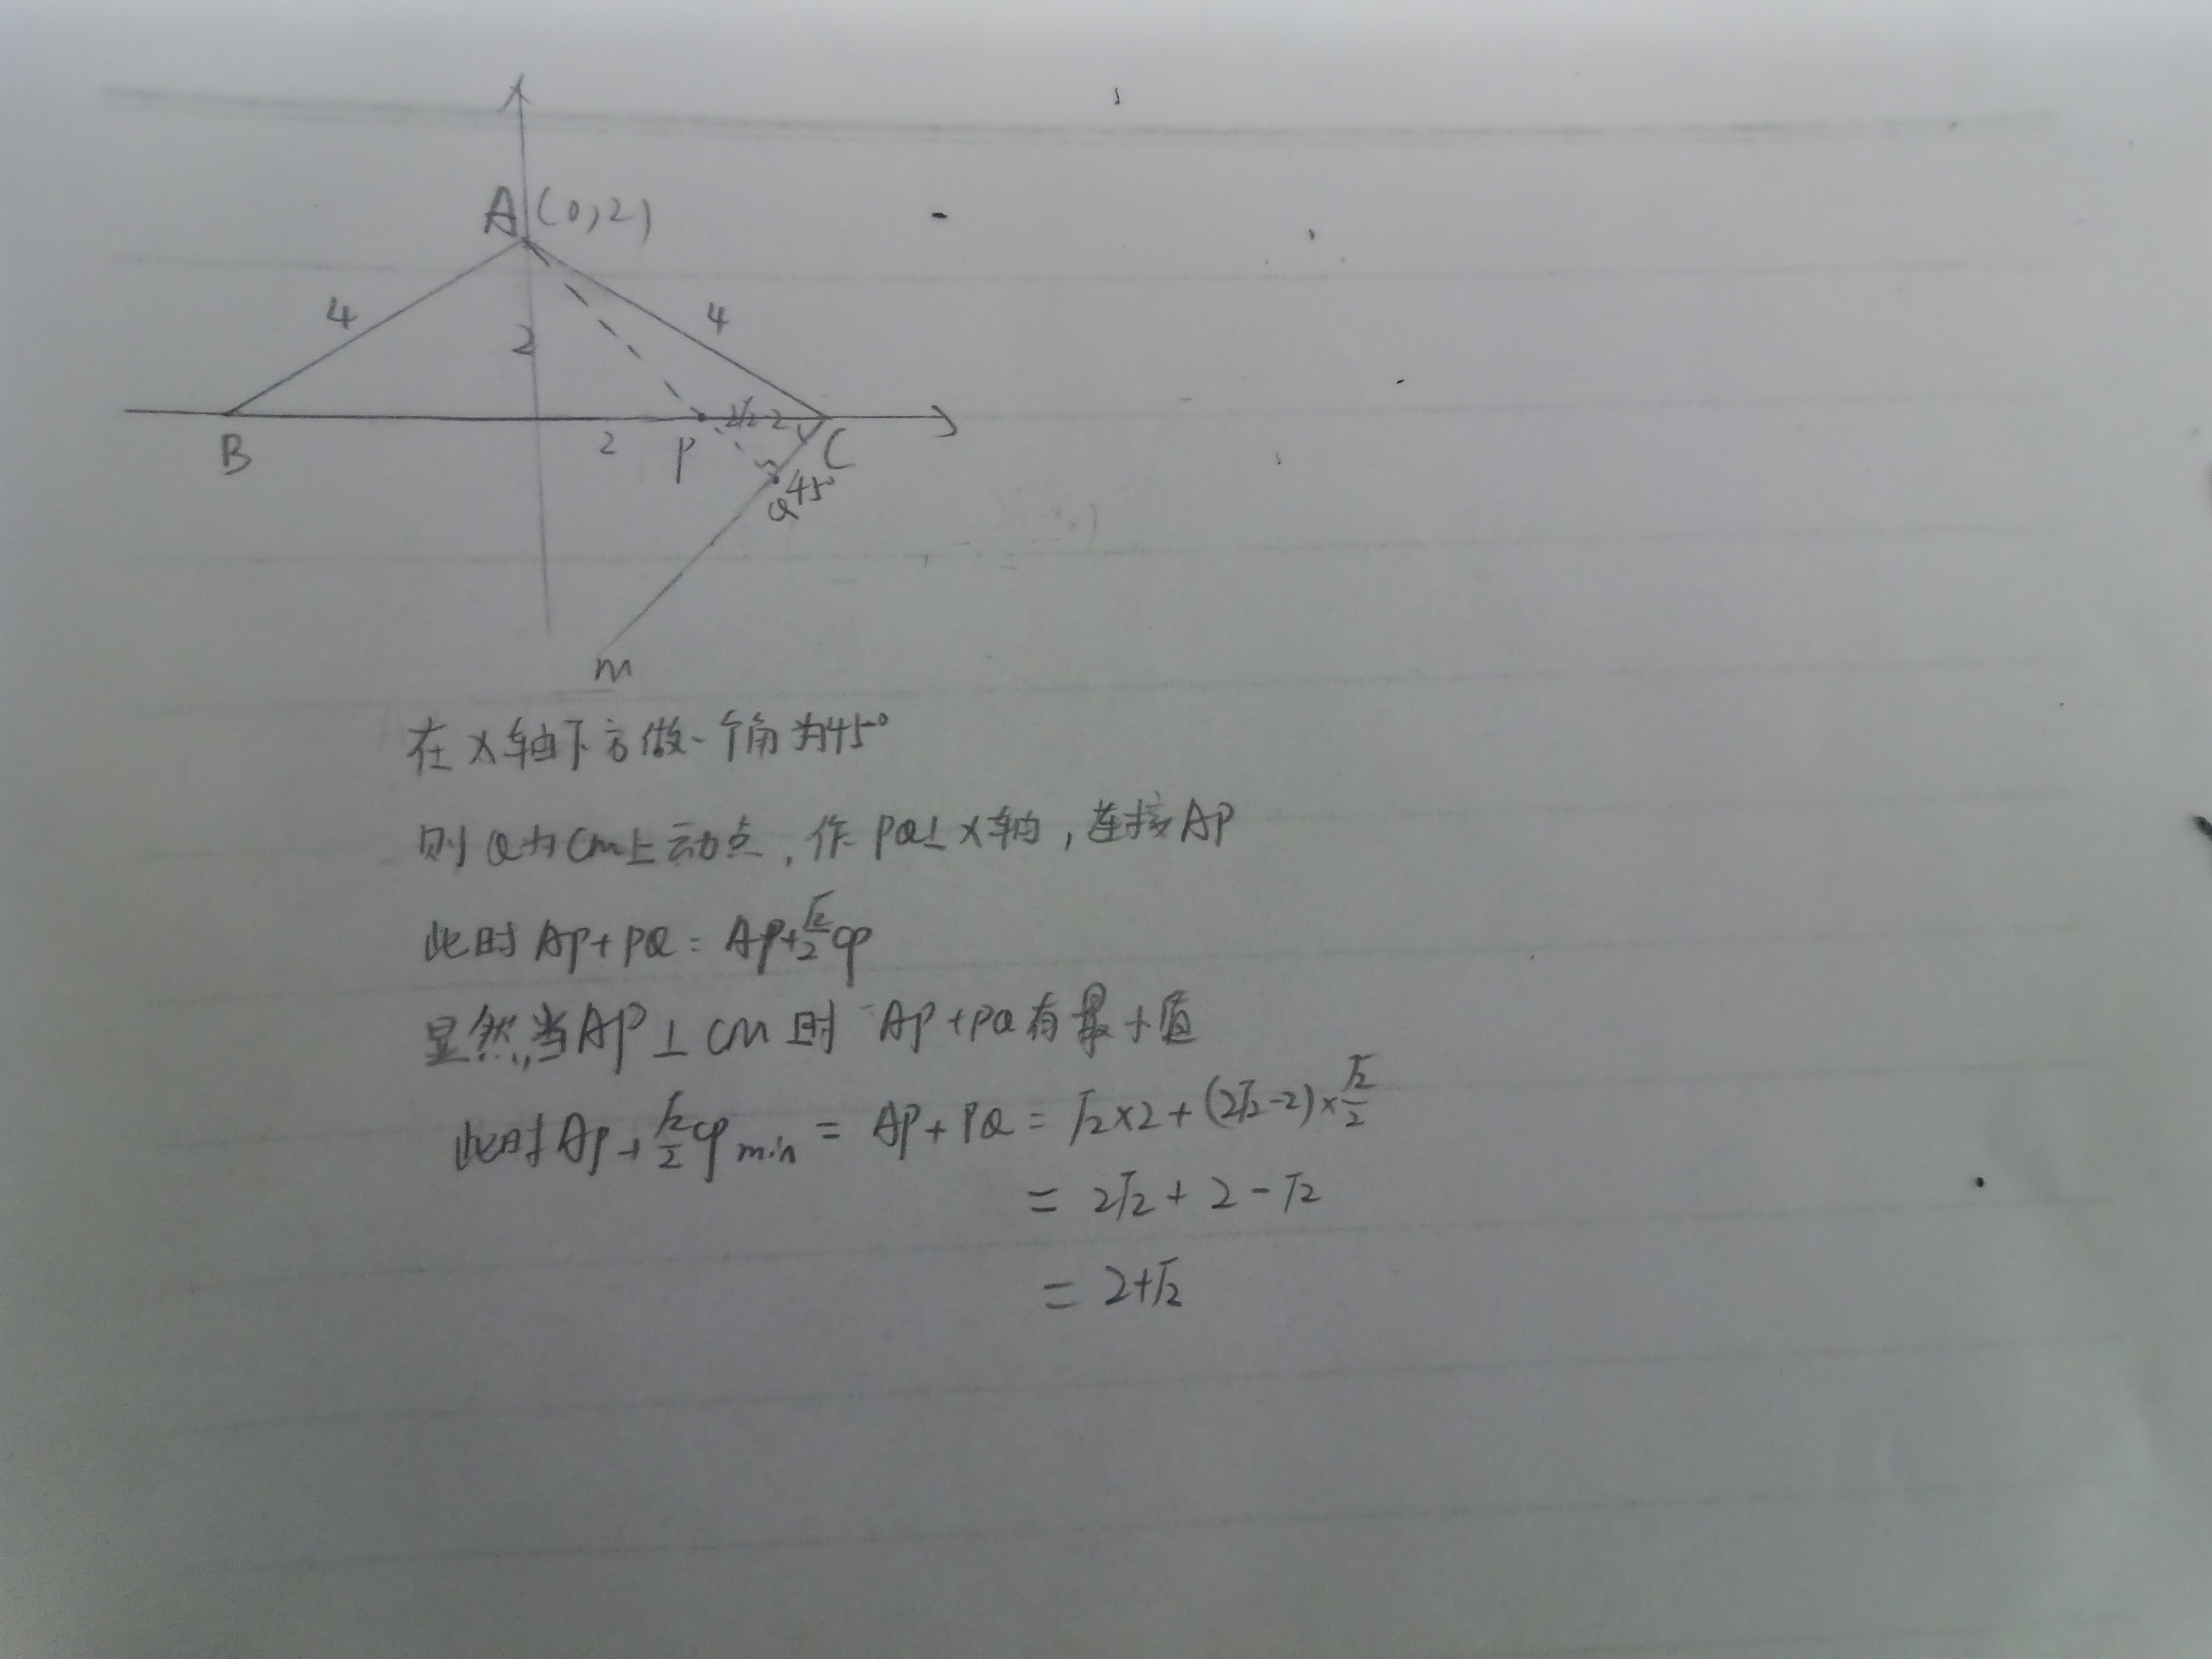 A(0,2)
4
4
2
B
2
P
2√2-2
C
45°
Q
m
在x轴下方做一个角为45°
则Q为CM上动点,作PQ⊥x轴,连接AP
此时AP+PQ=AP+√2/2CP
显然,当AP⊥CM时 AP+PQ有最小值
此时AP+√2/2CP min = AP+PQ = √2×2+(2√2-2)×√2/2
= 2√2+2-√2
= 2+√2